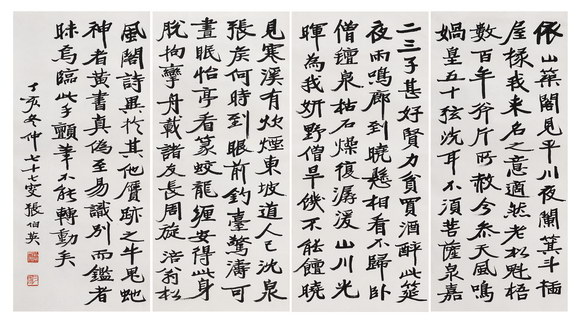 依山築閣見平川夜闌箕斗插
屋椽我来名之意適然老松魁梧
數百年斧斤所赦今参天風鳴
媧皇五十弦洗耳不須菩薩泉嘉
二三子甚好賢力貧買酒醉此筵
夜雨鳴廊到曉懸相看不歸卧
僧氈泉枯石燥復潺湲山川光
暉為我妍野僧旱饑不能饘曉
見寒溪有炊煙東坡道人已沈泉
張侯何時到眼前釣臺驚濤可
晝眠怡亭看篆蛟龍纏安得此身
脱拘攣舟載諸友長周旋浩翁松
風閣詩異於其贋跡之牛鬼蛇
神者黄書真偽至易識别而鑑者
昧焉臨此手顫筆不能轉動矣
丁亥冬仲七十七叟張伯英